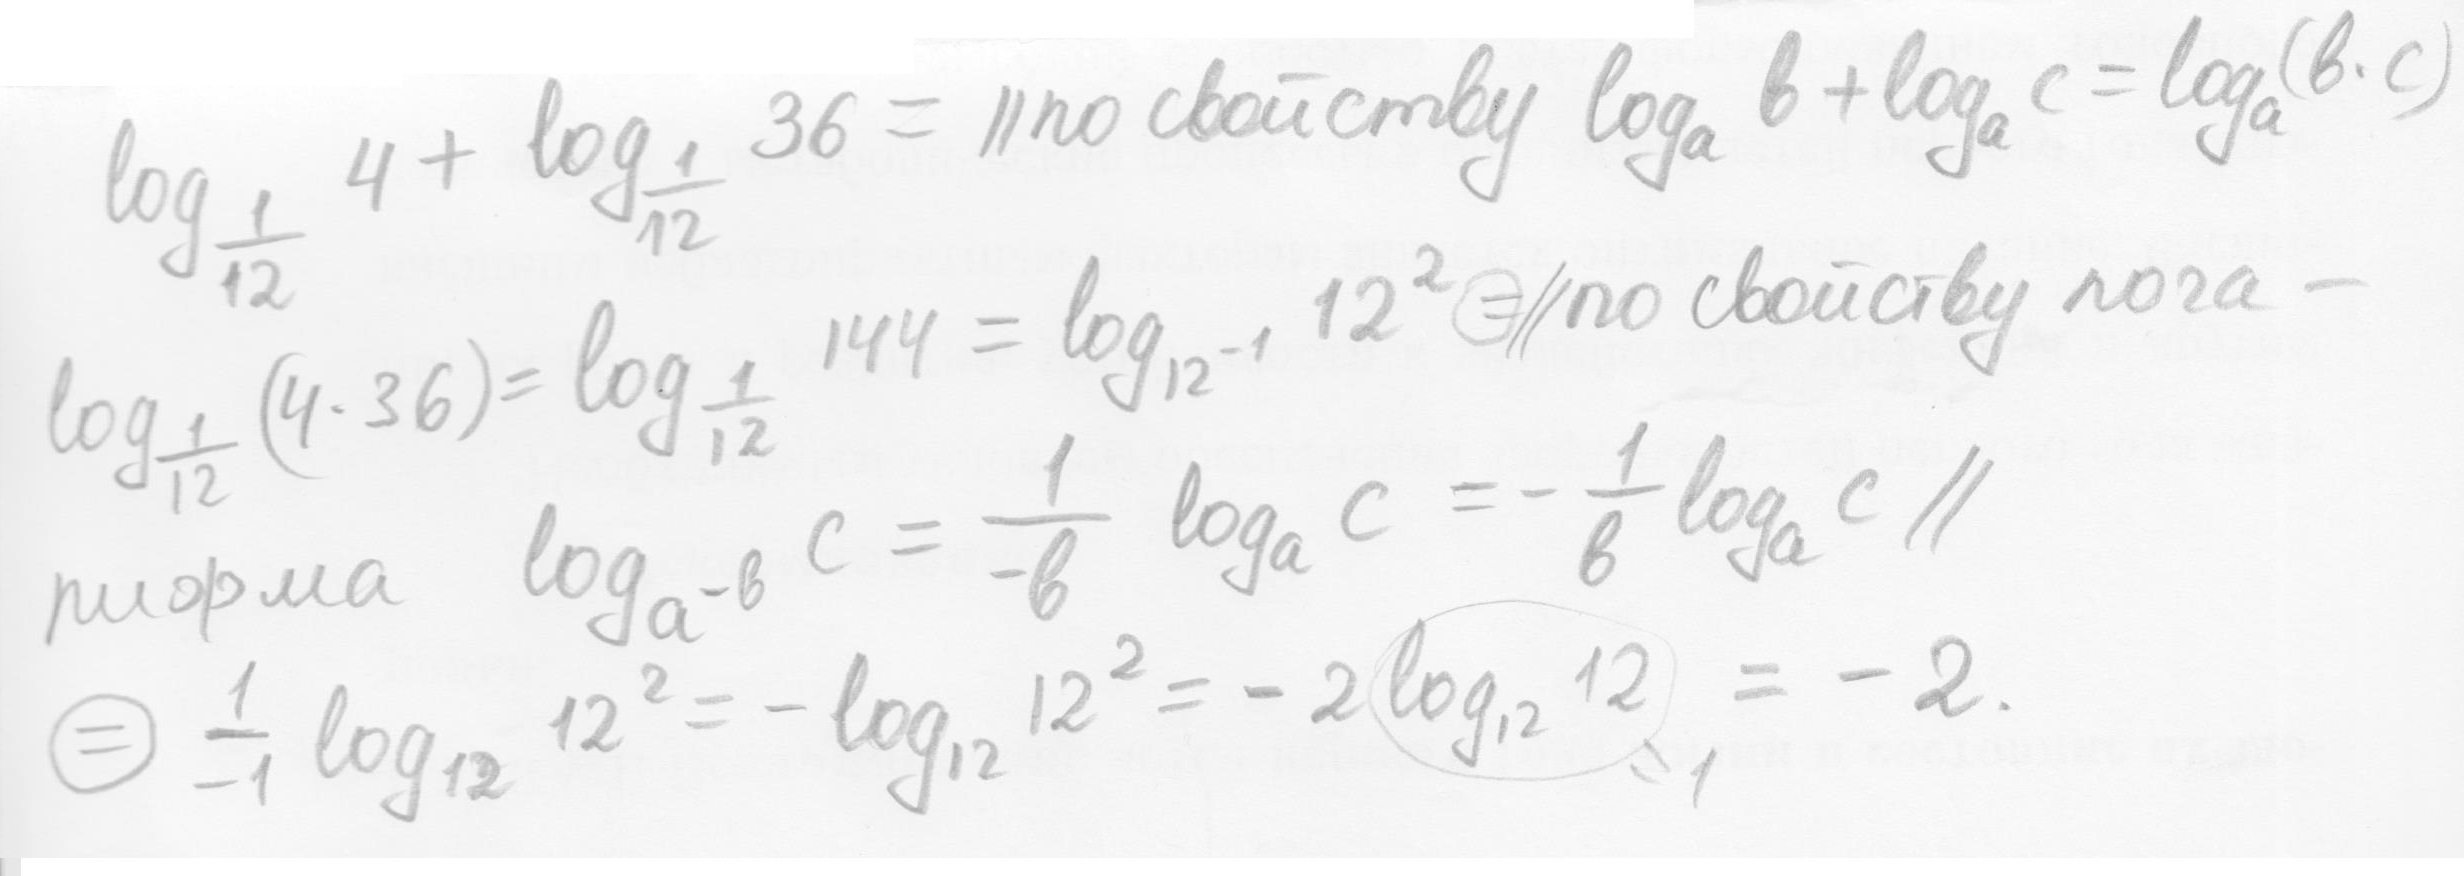 log_{1/12} 4 + log_{1/12} 36 = // по свойству log_a b + log_a c = log_a (b · c)
log_{1/12} (4 · 36) = log_{1/12} 144 = log_{12^{-1}} 12^2 ⊜ // по свойству лога-
рифма log_{a^{-b}} c = \frac{1}{-b} log_a c = - \frac{1}{b} log_a c //
⊜ \frac{1}{-1} log_{12} 12^2 = - log_{12} 12^2 = - 2 log_{12} 12 = - 2.
= 1